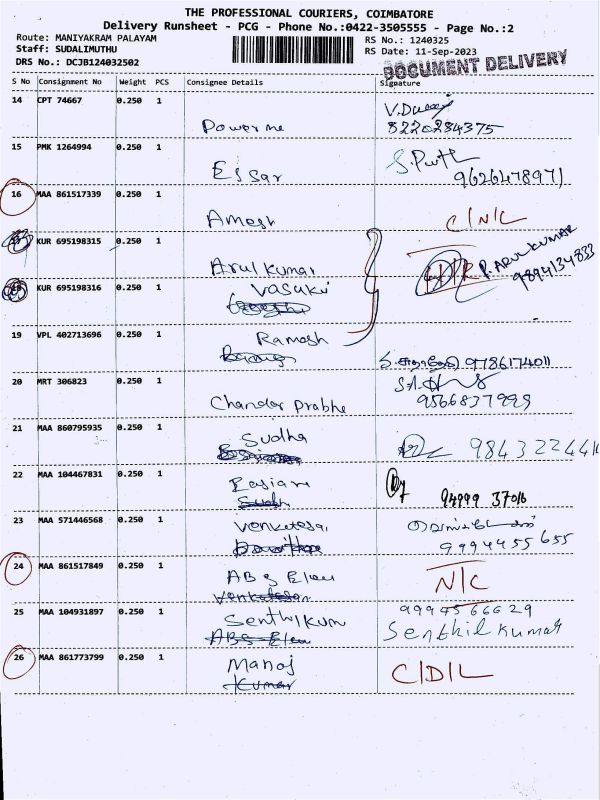 THE PROFESSIONAL COURIERS, COIMBATORE
Delivery Runsheet - PCG - Phone No.:0422-3505555 - Page No.:2
Route: MANIYAKRAM PALAYAM
RS No.: 1240325
Staff: SUDALIMUTHU
RS Date: 11-Sep-2023
DRS No.: DCJB124032502
DOCUMENT DELIVERY
S No Consignment No Weight PCS Consignee Details Signature
14 CPT 74667 0.250 1
Power me
8220284375
15 PMK 1264994 0.250 1
Essar
9626478971
16 MAA 861517339 0.250 1
Amesh C/N/L
KUR 695198315 0.250 1
Arul kumar P. ARUL KUMAR
9894134833
KUR 695198316 0.250 1
Vasuki
19 VPL 402713696 0.250 1
Ramesh
9786174011
20 MRT 306823 0.250 1
Chandar Prabhe
9566837999
21 MAA 860795935 0.250 1
Sudha
22 MAA 104467831 0.250 1
94999 37016
23 MAA 571446568 0.250 1
Venkatesa
9994455655
24 MAA 861517849 0.250 1
N/C
25 MAA 104931897 0.250 1
Senthilkum
Senthil kumar
26 MAA 861773799 0.250 1
Manoj
Kumar
C/D/L